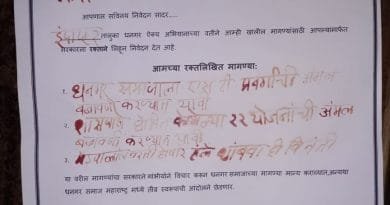 आपणास सविनय निवेदन सादर.....
इंदापूर तालुका धनगर ऐक्य अभियानाच्या वतीने आम्ही खालील मागण्यांसाठी आपल्यामार्फत
सरकारला रक्ताने लिहून निवेदन देत आहे.
आमच्या रक्तलिखित मागण्या:
१. धनगर समाजाला एस टी प्रवर्गाची अंमल
बजावणी करण्यात यावी
२. शासनाने केलेल्या २२ योजनांची अंमल
बजावणी करण्यात यावी
३. मेंढपाळांवरती होणारे हल्ले थांबवा ही विनंती
या वरील मागण्यांचा सरकारने गांभीर्याने विचार करून धनगर समाजाच्या मागण्या मान्य कराव्यात,अन्यथा
धनगर समाज महाराष्ट्र मध्ये तीव्र स्वरूपाची आंदोलने छेडणार.